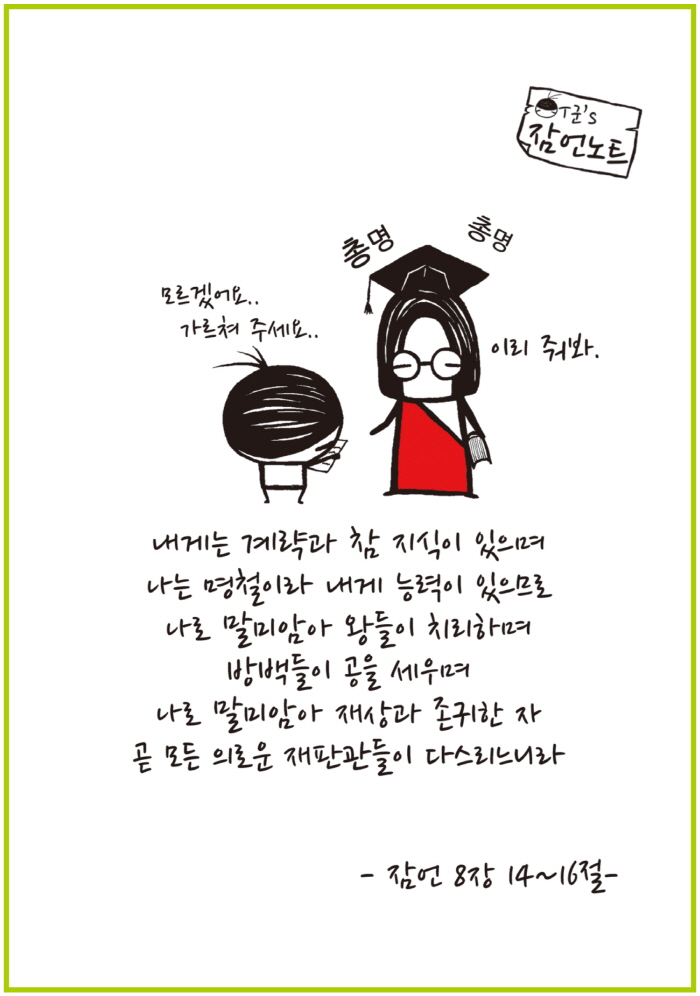 T군's
잠언노트
총명
총명
모르겠어요..
가르쳐 주세요..
이리 줘봐.
내게는 계략과 참 지식이 있으며
나는 명철이라 내게 능력이 있으므로
나로 말미암아 왕들이 치리하며
방백들이 공을 세우며
나로 말미암아 재상과 존귀한 자
곧 모든 의로운 재판관들이 다스리느니라
- 잠언 8장 14~16절-